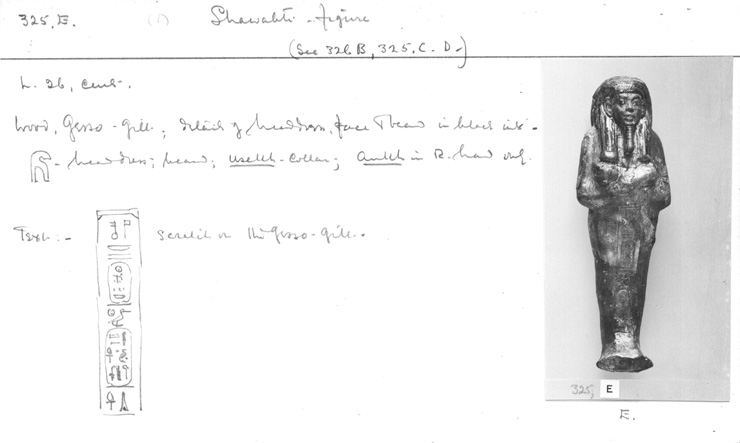 325, E. (1) Shawabti-figure
(See 326 B, 325, C. D.)
L. 26, cent.
Wood, Gesso-gilt; details of headdress, face & beard in black ink.
- headdress; beard; usekh-collar; Ankh in R. hand only.
Text:- scratched on the Gesso-gilt.
325; E
E.